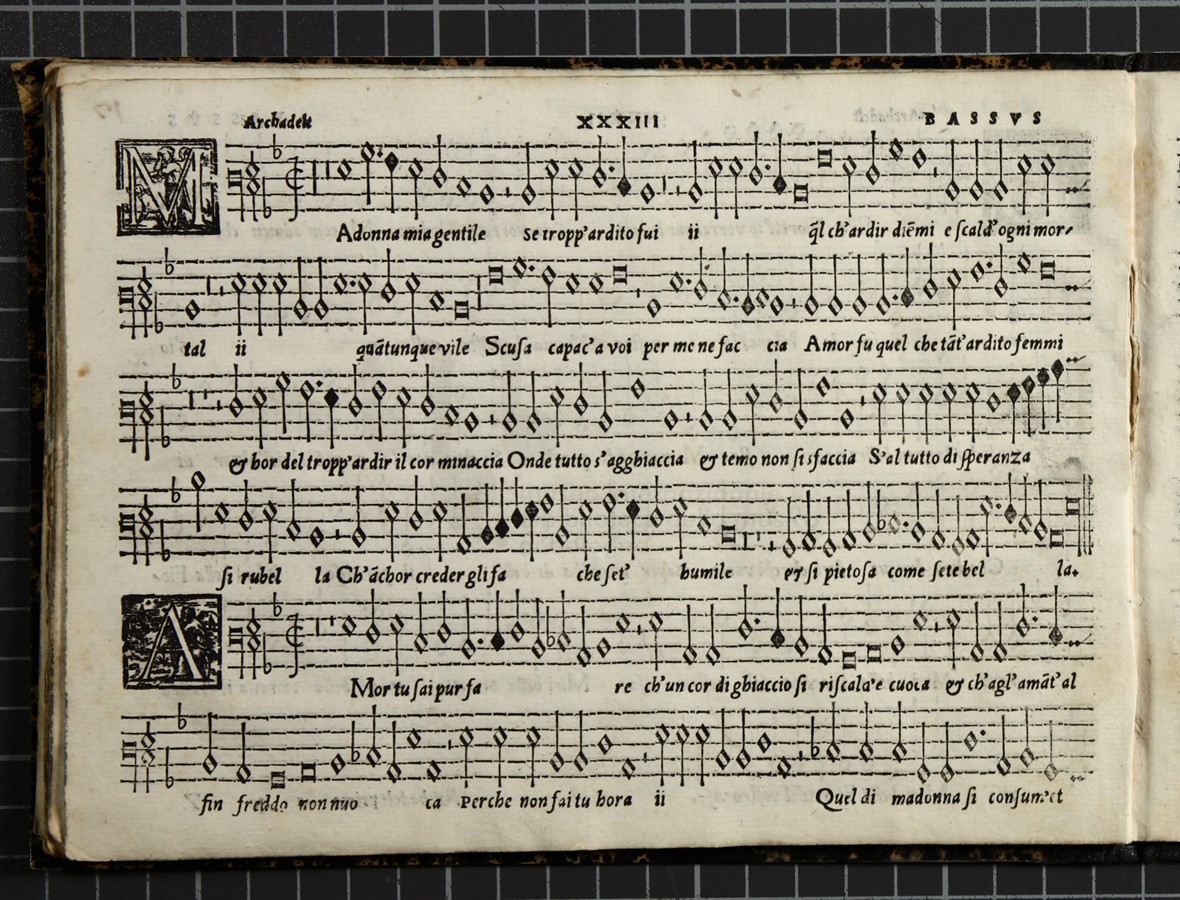 Archadelt XXXIII BASSVS
MAdonna mia gentile se tropp'ardito fui ii q̃l ch'ardir diẽmi e scald'ogni mor-
tal ii quãtunque vile Scusa capac'a voi per me ne fac cia Amor fu quel che tãt'ardito femmi
& hor del tropp'ardir il cor minaccia Onde tutto s'agghiaccia & temo non si sfaccia S'al tutto di speranza
si rubel la Ch'ãchor creder gli fa che set' humile & si pietosa come sete bel la.
AMor tu sai pur fa re ch'un cor di ghiaccio si riscala'e cuoca & ch'agl'amãt'al
fin freddo non nuo ca Perche non fai tu hora ii Quel di madonna si